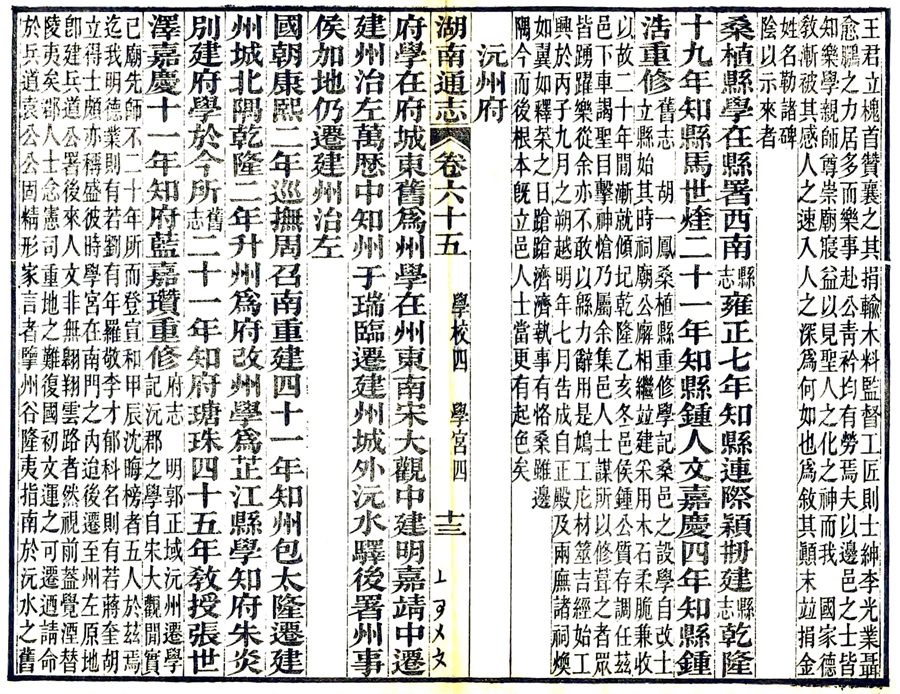 王君立槐首贊襄之其捐輸木料監督工匠則士紳李光業聶
愈驑之力居多而樂事赴公青衿均有勞焉夫以邊邑之士皆
知樂學親師尊崇廟寢益以見聖人之化之神而我 國家德
敎漸被其感人之速入人之深爲何如也爲敘其顚末竝捐金
姓名勒諸碑
陰以示來者
桑植縣學在縣署西南縣志雍正七年知縣連際穎剏建縣志乾隆
十九年知縣馬世煃二十一年知縣鍾人文嘉慶四年知縣鍾
浩重修舊志 胡一鳳桑植縣重修學記桑邑之設學自改土
立縣始其時祠廟公廨相繼竝建采用木石柔脆兼收
以故二十年閒漸就傾圮乾隆乙亥冬邑侯鍾公質存調任茲
邑下車謁聖目擊神愴乃屬余集邑人士謀所以修葺之者眾
皆踴躍樂從余亦不敢以緜力辭用是鳩工庀材筮吉經始工
興於丙子九月之朔越明年七月告成自正殿及兩廡諸祠煥
如翼如釋菜之日蹌蹌濟濟執事有恪桑雖邊
隅今而後根本旣立邑人士當更有起色矣
沅州府
湖南通志 卷六十五 學校四 學宮四 十三
府學在府城東舊爲州學在州東南宋大觀中建明嘉靖中遷
建州治左萬歷中知州于瑞臨遷建州城外沅水驛後署州事
侯加地仍遷建州治左
國朝康熙二年巡撫周召南重建四十一年知州包太隆遷建
州城北隅乾隆二年升州爲府改州學爲芷江縣學知府朱炎
別建府學於今所舊志二十一年知府瑭珠四十五年敎授張世
澤嘉慶十一年知府藍嘉瓚重修府志 明郭正域沅州遷學
記沅郡之學自朱大觀閒實
己廟先師不二十年所而登宣和甲辰沈晦榜者五人於茲焉
迄我明德業則有若劉有年羅敬李才郁科名則有若蔣奎胡
立得士頗亦稱盛彼時學宮在南門之內迫後遷至州左原地
卽建兵道公署後來人文非無翺翔雲路者然視前蓋覺湮替
陵夷矣郡人士念憲司重地之難復國初文運之可遷迺請命
於兵道袁公公固精形家言者擥州谷隆夷指南於沅水之舊